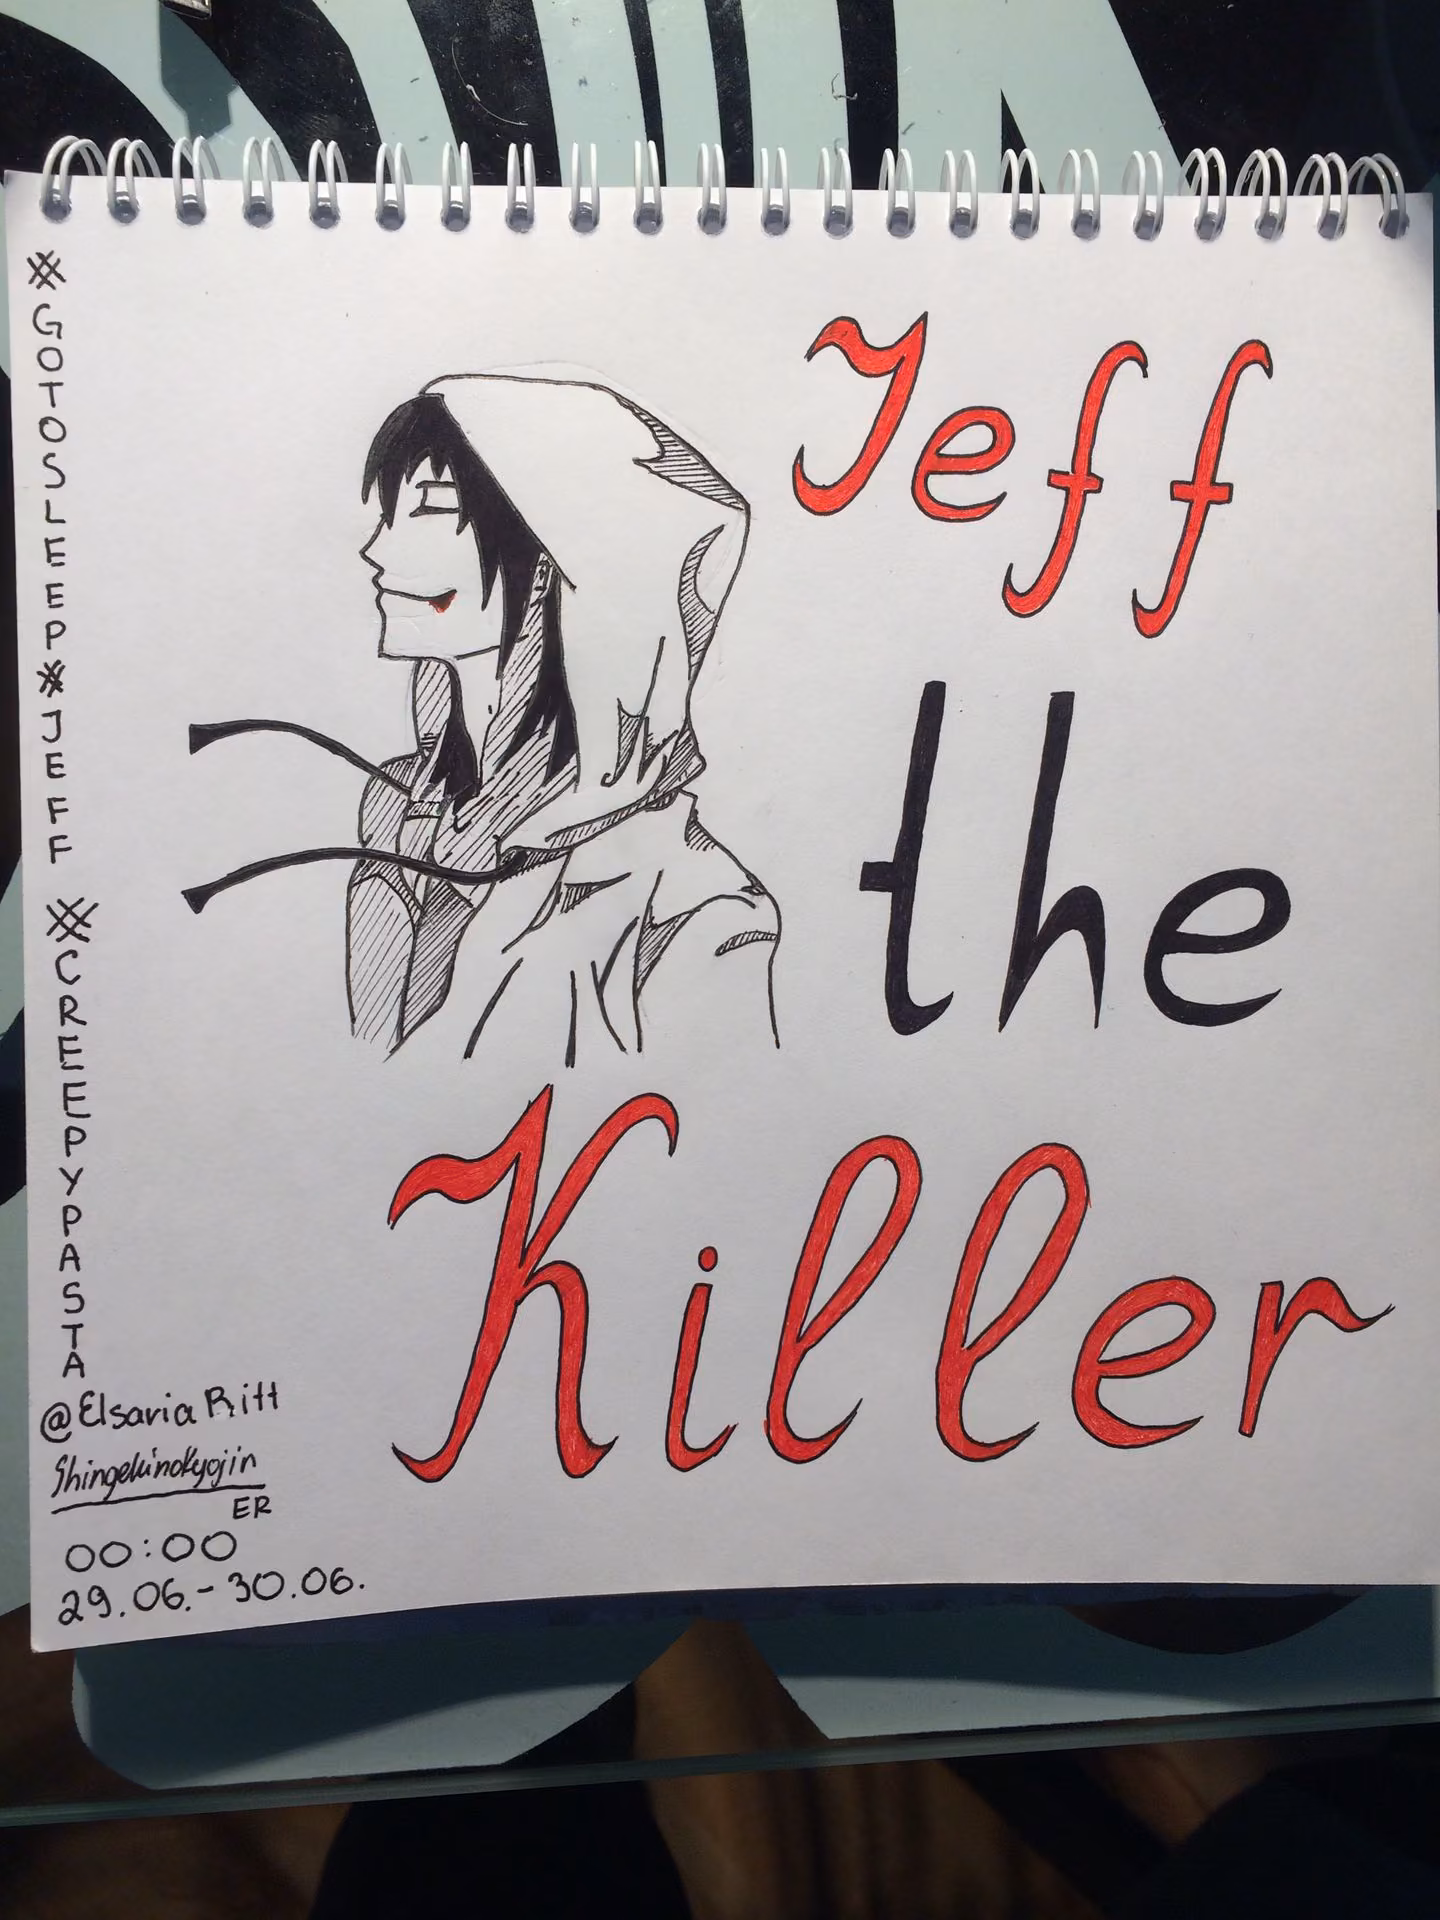 Jeff
the
Killer
#GOTOSLEEP#JEFF #CREEPYPASTA
@Elsaria Ritt
Shingekinokyojin
ER
00:00
29.06.-30.06.